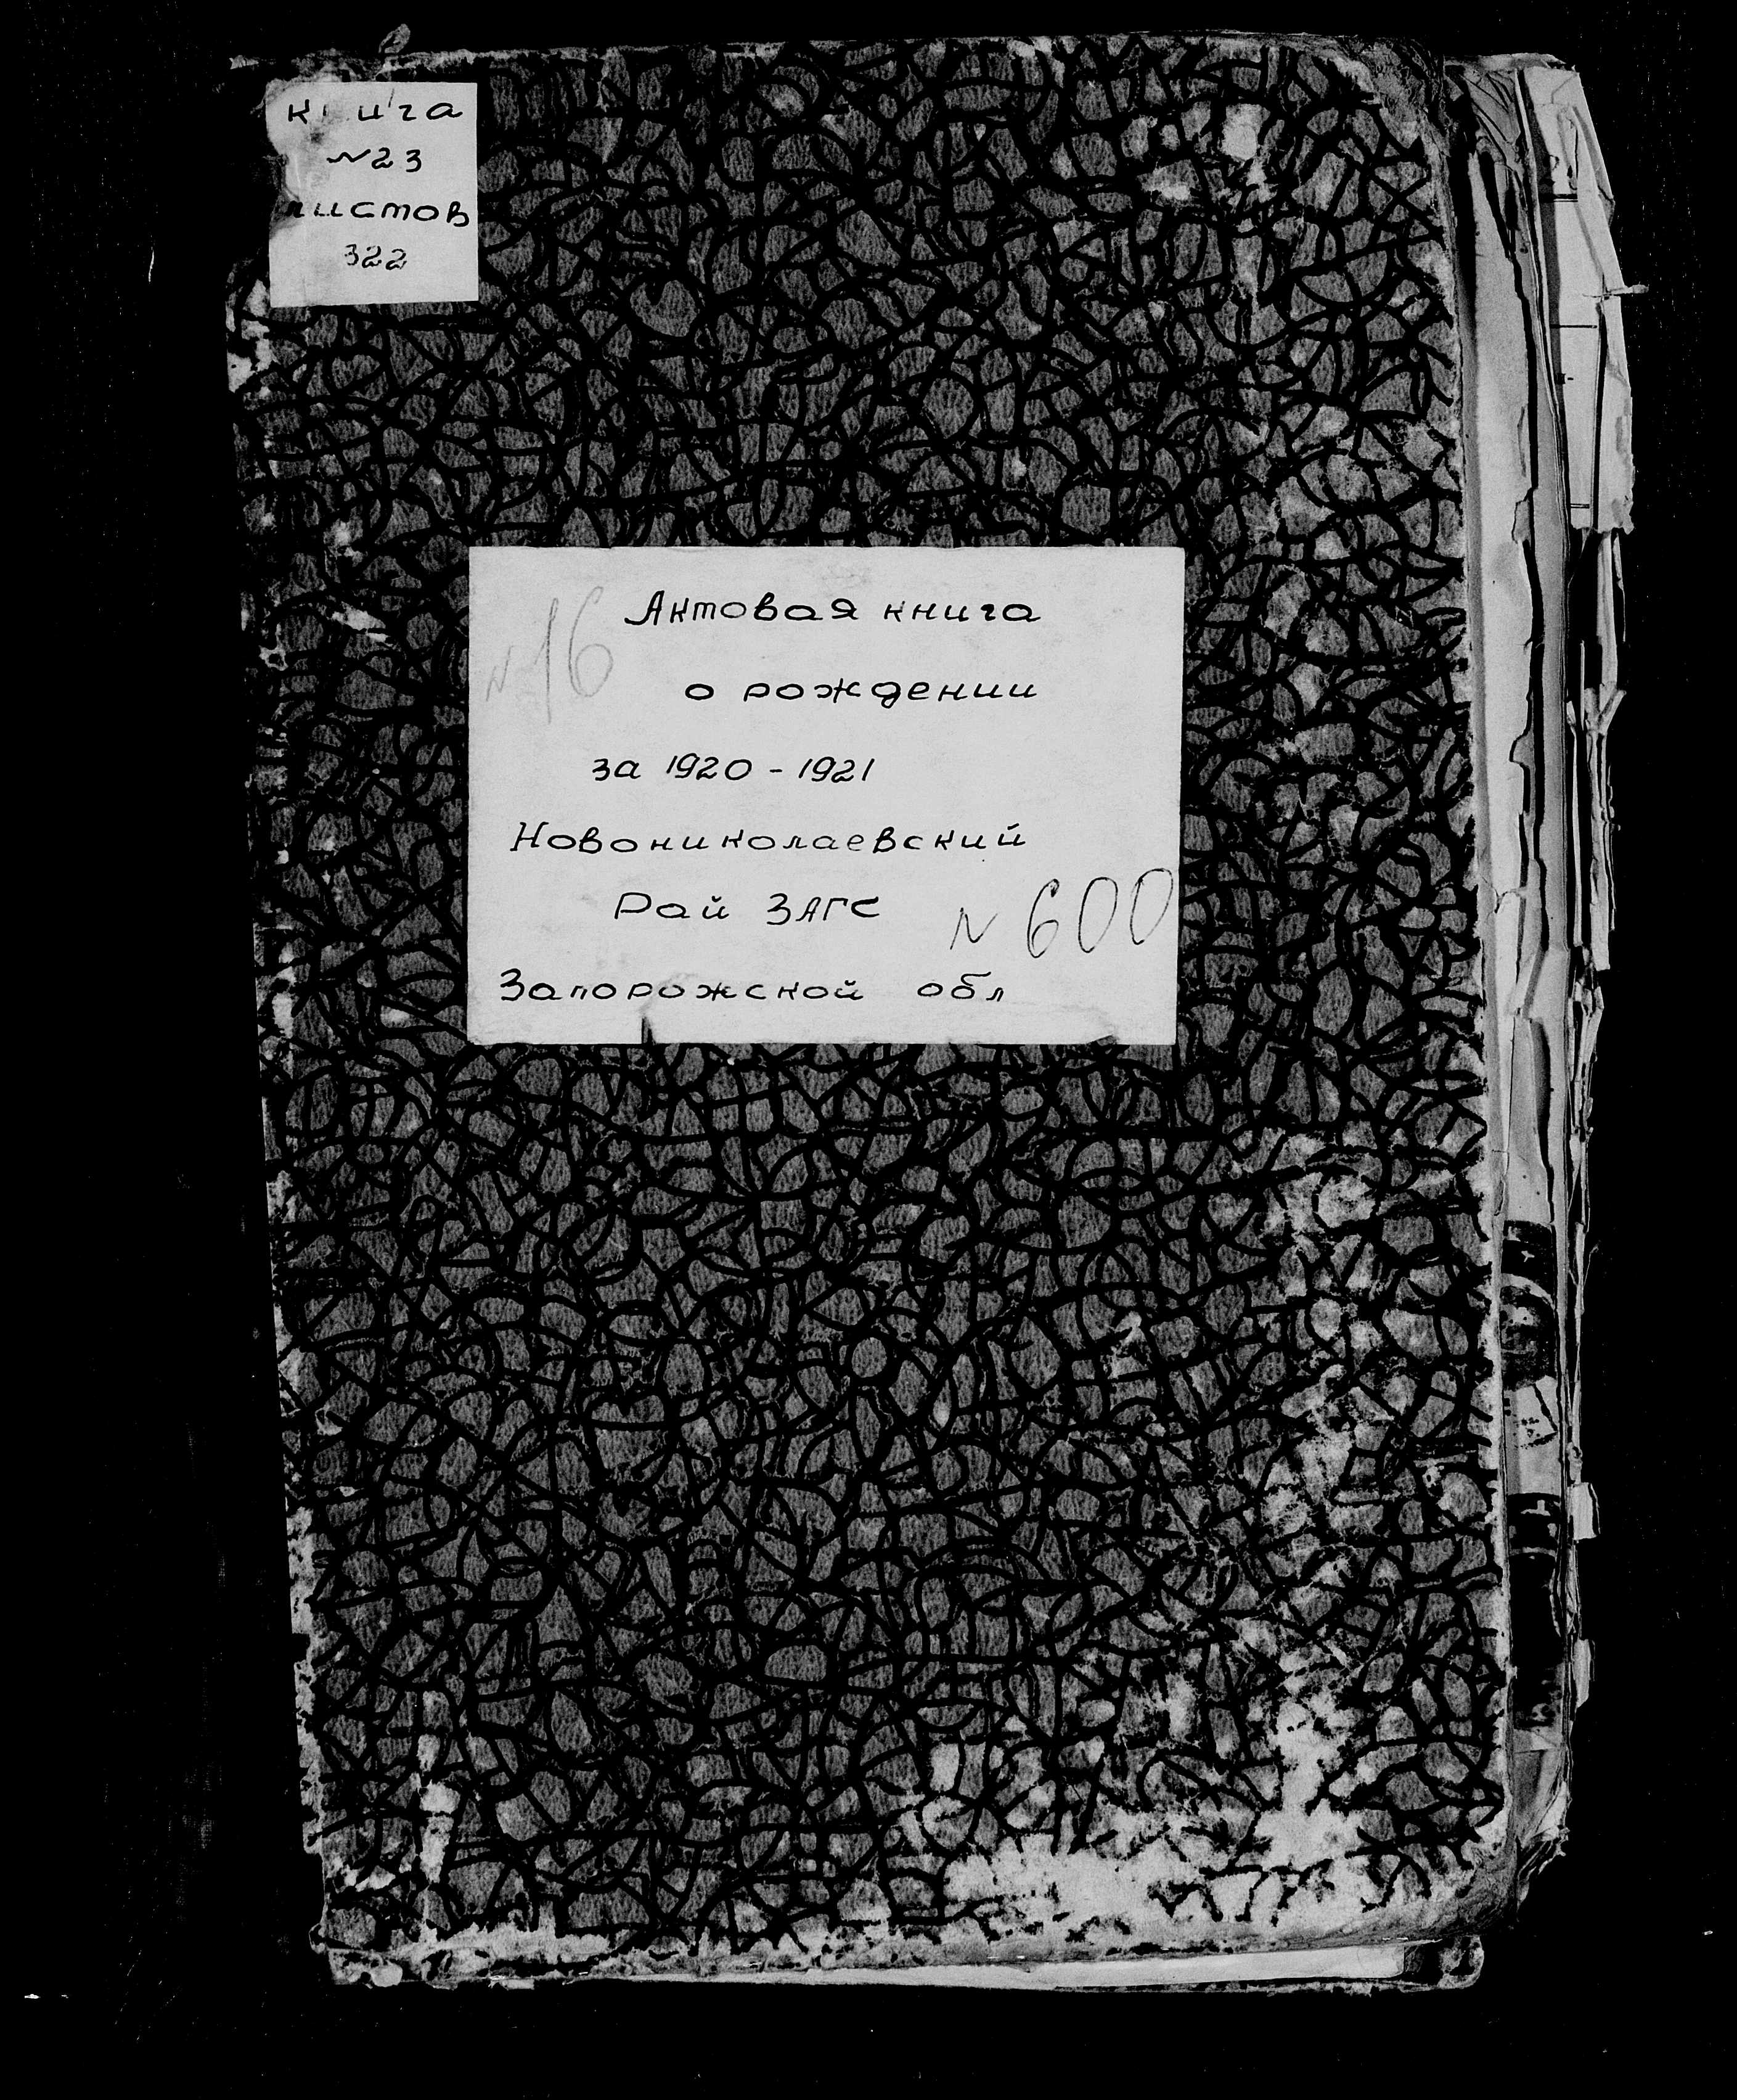 книга
№23
листов
322
№16
Актовая книга
о рождении
за 1920-1921
Новониколаевский
Рай ЗАГС
№600
Запорожской обл